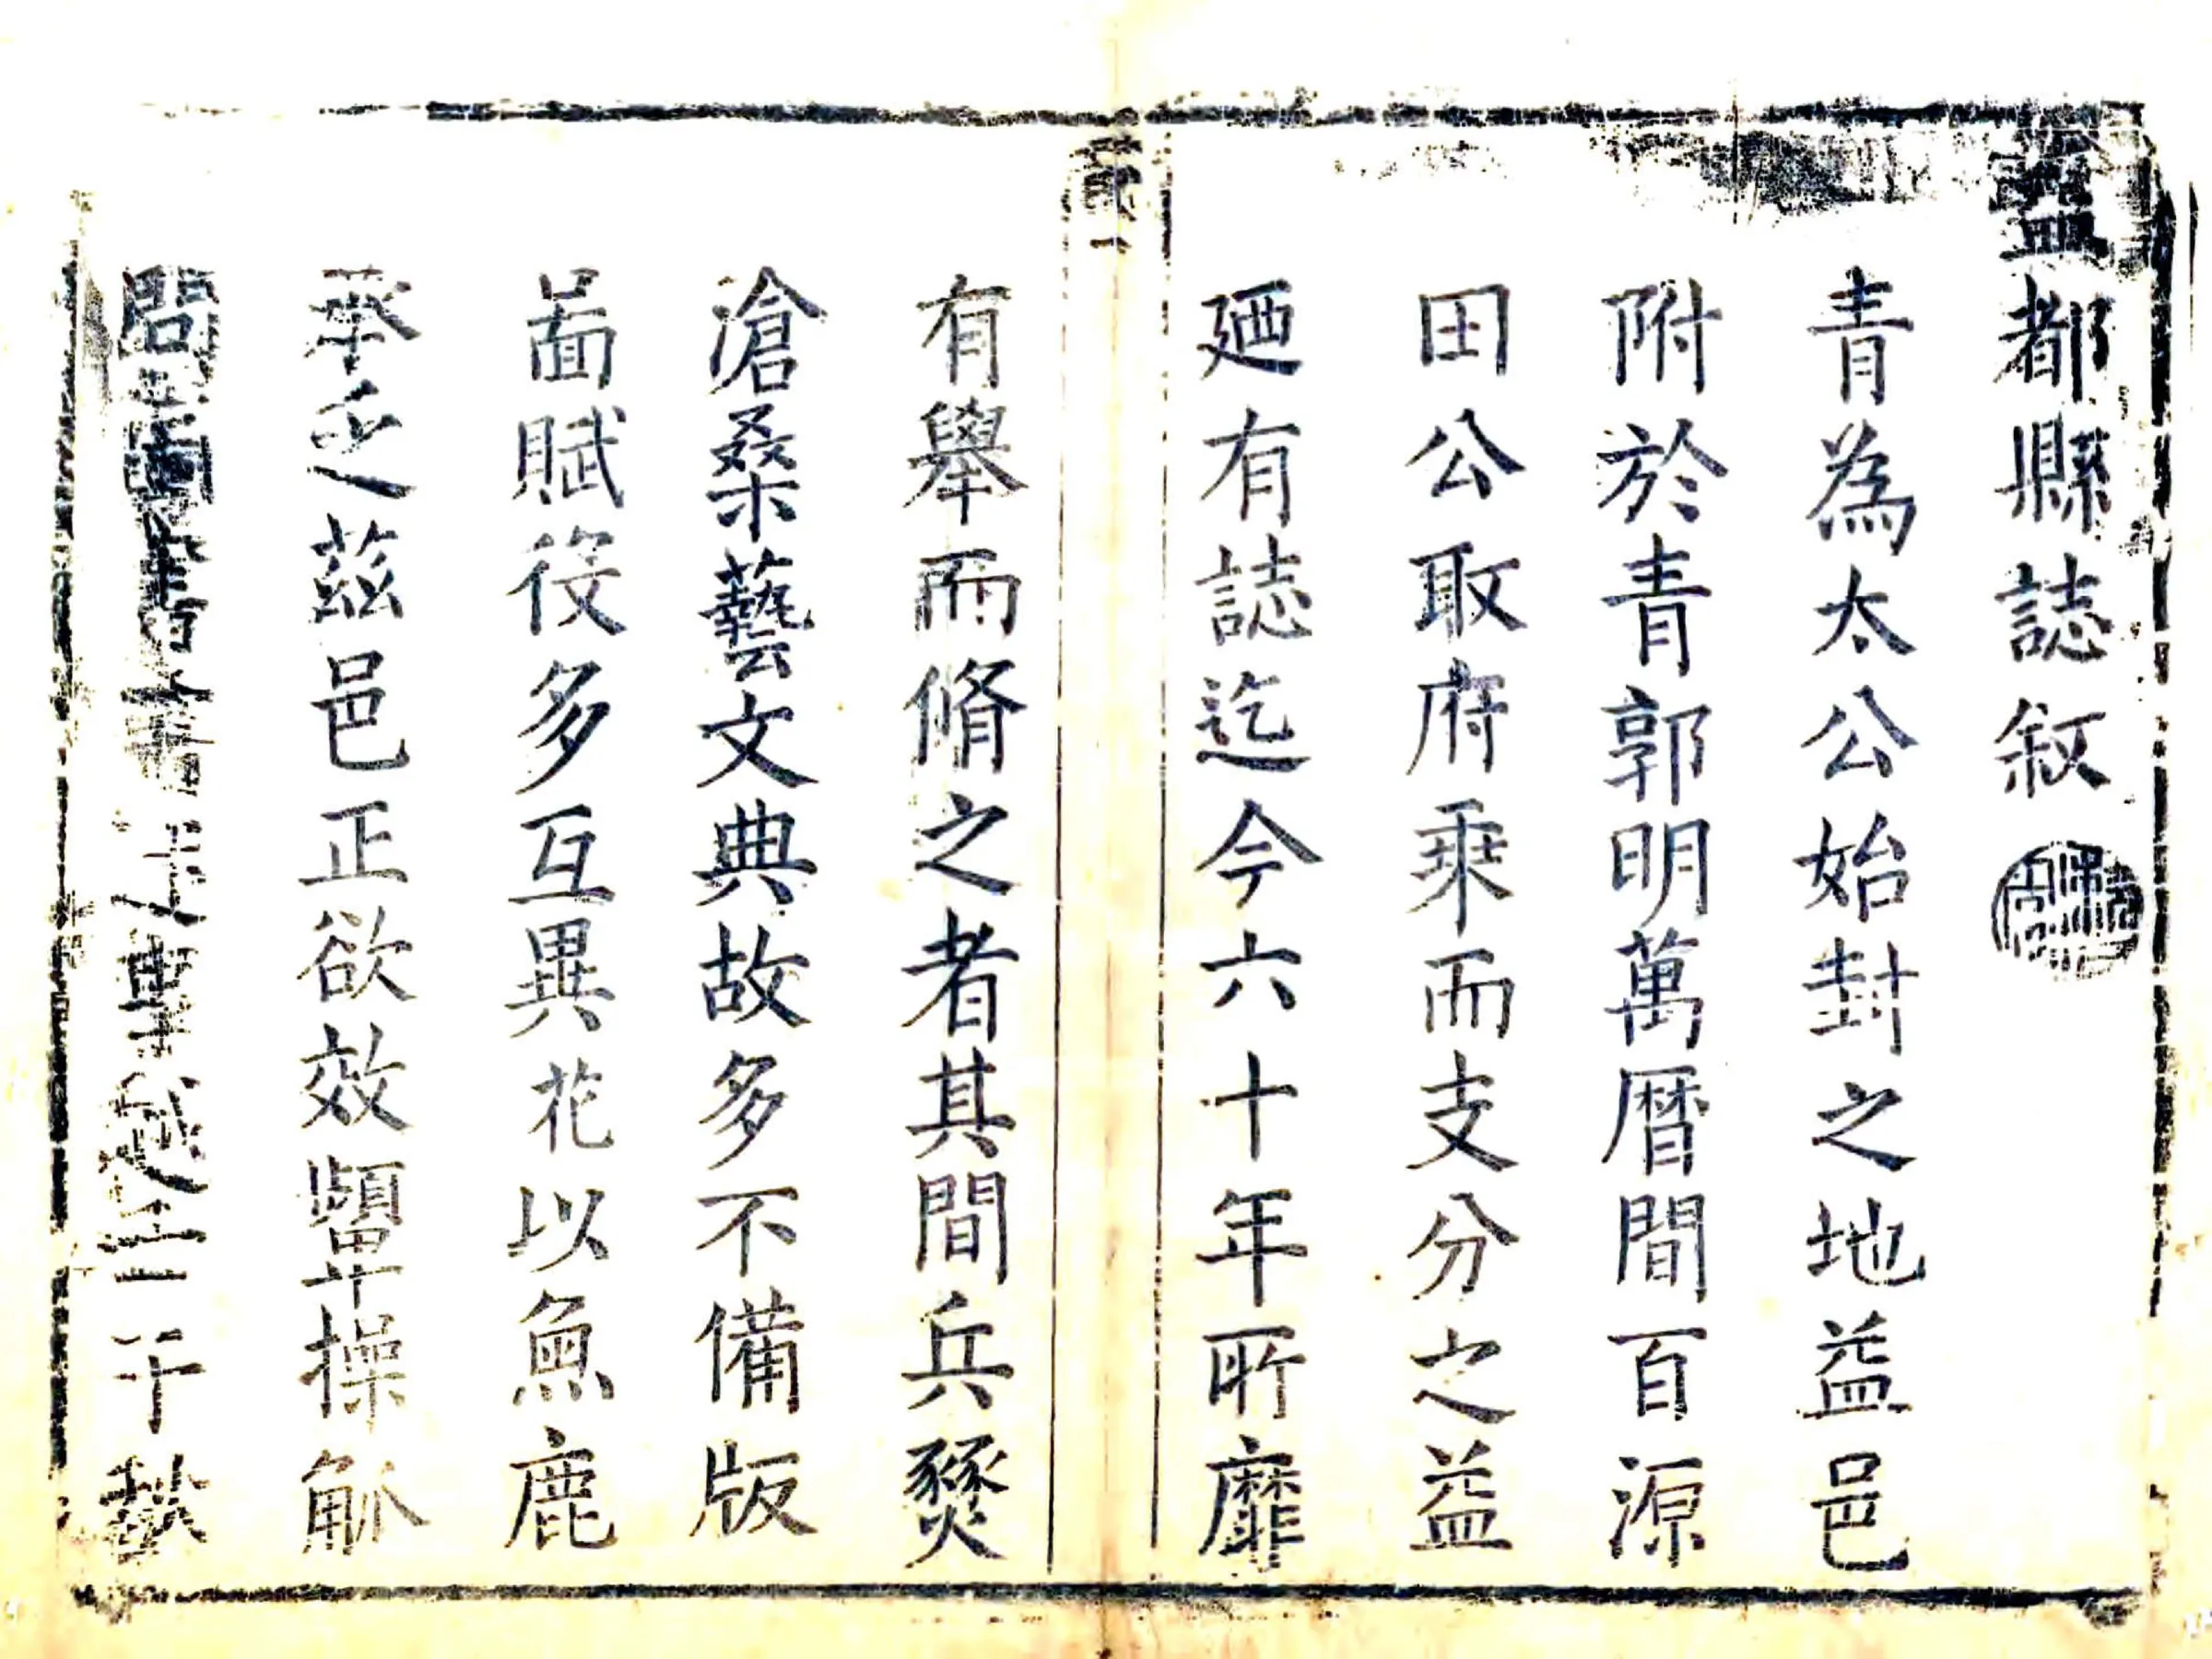 益都縣誌叙
青為太公始封之地益邑
附於青郭明萬曆間百源
田公取府乘而支分之益
廼有誌迄今六十年所靡
有舉而脩之者其間兵燹
滄桑藝文典故多不備版
啚賦役多互異花以魚鹿
乏茲邑正欲效顰操觚
問